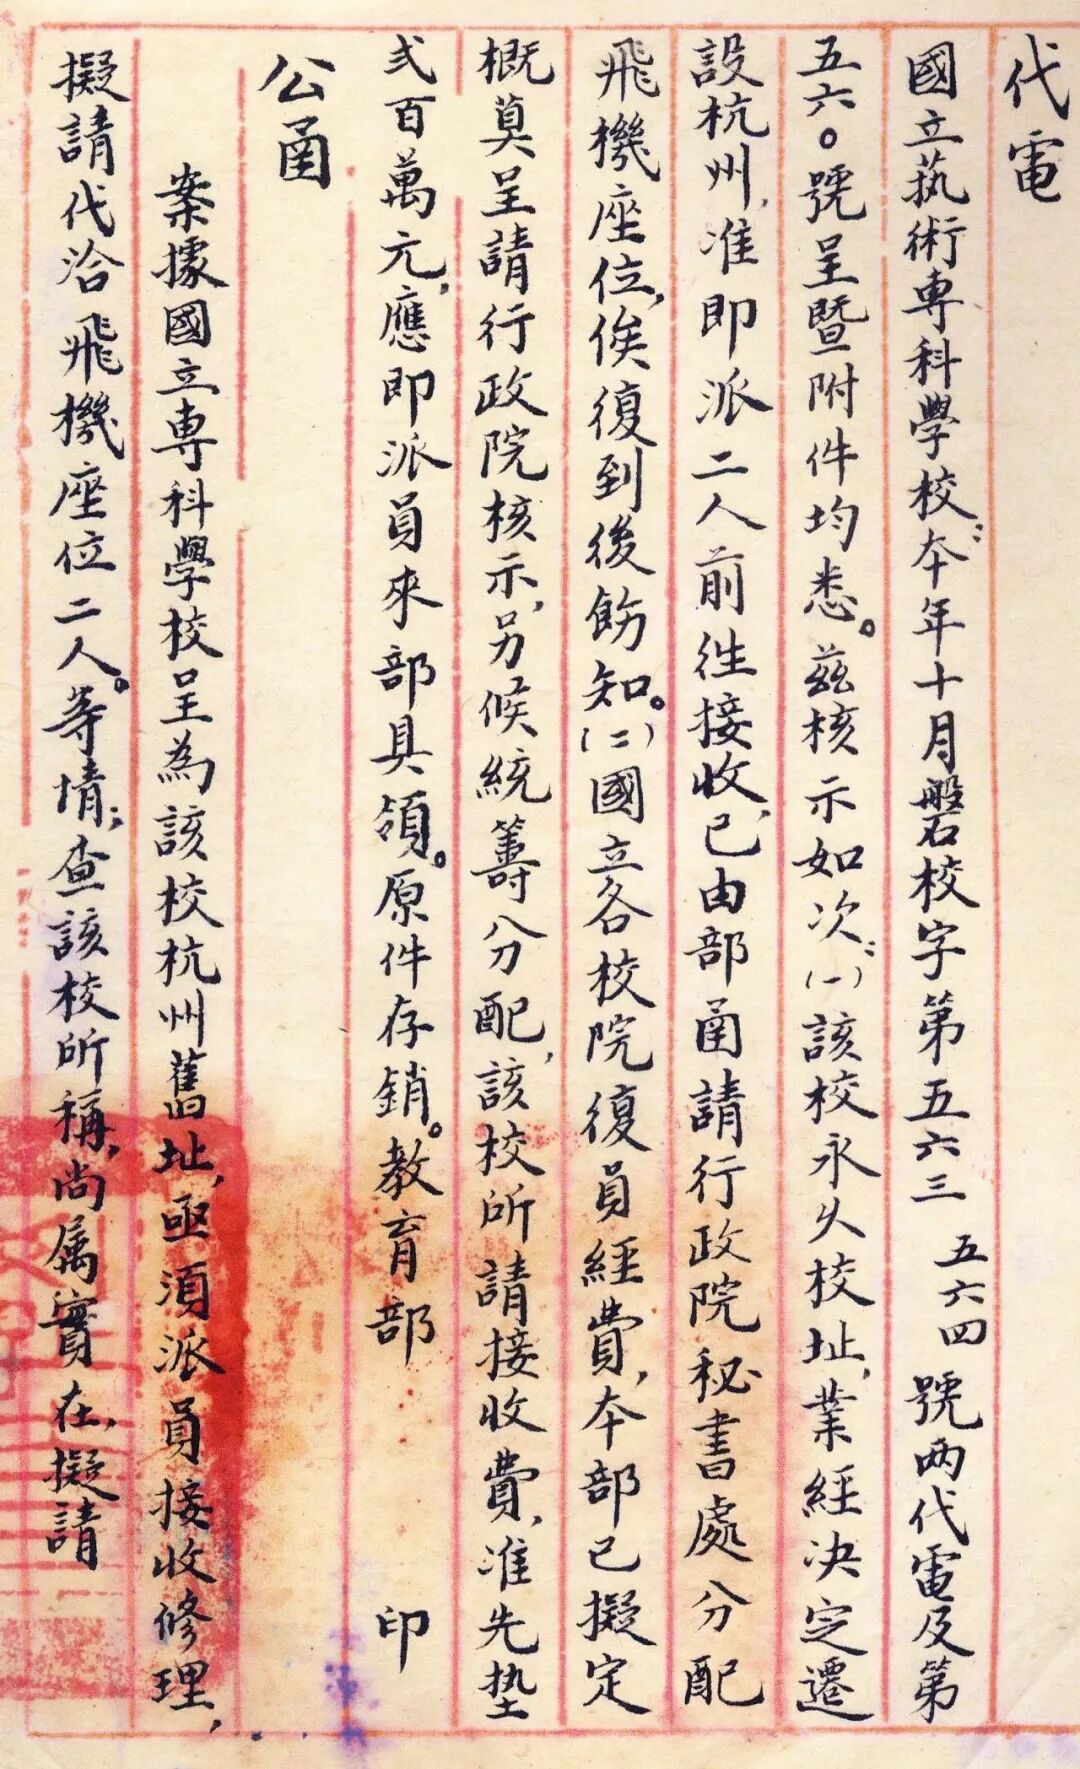 代電
國立執術專科學校：本年十月磐校字第五六三 五六四 號两代電及第
五六〇號呈暨附件均悉。茲核示如次：(一)該校永久校址，業經決定遷
設杭州，准即派二人前往接收，已由部函請行政院秘書處分配
飛機座位，俟復到後飭知。(二)國立各校院復員經費，本部已擬定
概算呈請行政院核示，另候統籌分配，該校所請接收費，准先墊
弍百萬元，應即派員來部具領。原件存銷。教育部 印
公函
案據國立專科學校呈為該校杭州舊址，亟須派員接收修理，
擬請代洽飛機座位二人。等情；查該校所稱，尚属實在，擬請